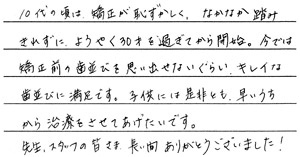 10代の頃は、矯正が恥ずかしく、なかなか踏み
きれずに、ようやく30才を過ぎてから開始。今では
矯正前の歯並びを思い出せないぐらい、キレイな
歯並びに満足です。子供には是非とも、早いうち
から治療をさせてあげたいです。
先生、スタッフの皆さま、長い間ありがとうございました！